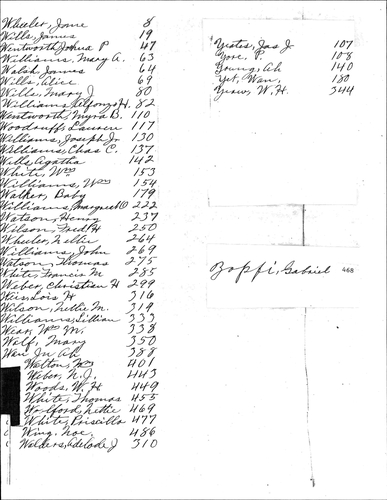 Wheeler, Jane 8
Wills, James 19
Wentworth, Joshua P 47
Williams, Mary A. 63
Walsh, James 64
Wills, Alice 69
Wille, Mary J 80
Williams, Alfonzo H. 82
Wentworth, Myra B. 110
Woodruff, Lauren 117
Williams, Joseph Jr 130
Williams, Chas C. 137
Wells, Agatha 142
White, Wm 153
Williams, Wm 154
Walker, Baby 179
Williams, Margaret O 222
Watson, Henry 237
Wilson, Fred H 250
Wheeler, Nettie 264
Williams, John 269
Watson, Thomas 275
White, Francis M 285
Weber, Christian H 299
Weis, Lois H 316
Wilson, Nettie M. 319
Williams, Lillian 333
Wear, Wm M. 338
Wolf, Mary 350
Wan Jn Ah 388
Walton, Wm 401
Weber, N.J. 443
Woods, W. H 449
White, Thomas 455
Worlford, Nettie 469
White, Priscilla 477
Wing, Noe. 486
Walders, Adelade J 310
Yeates, Jas Jr 107
Yore, P. 108
Young, Ah 140
Yet, Wan, 180
Yerow, W. H. 344
Zoppfi, Gabriel 468